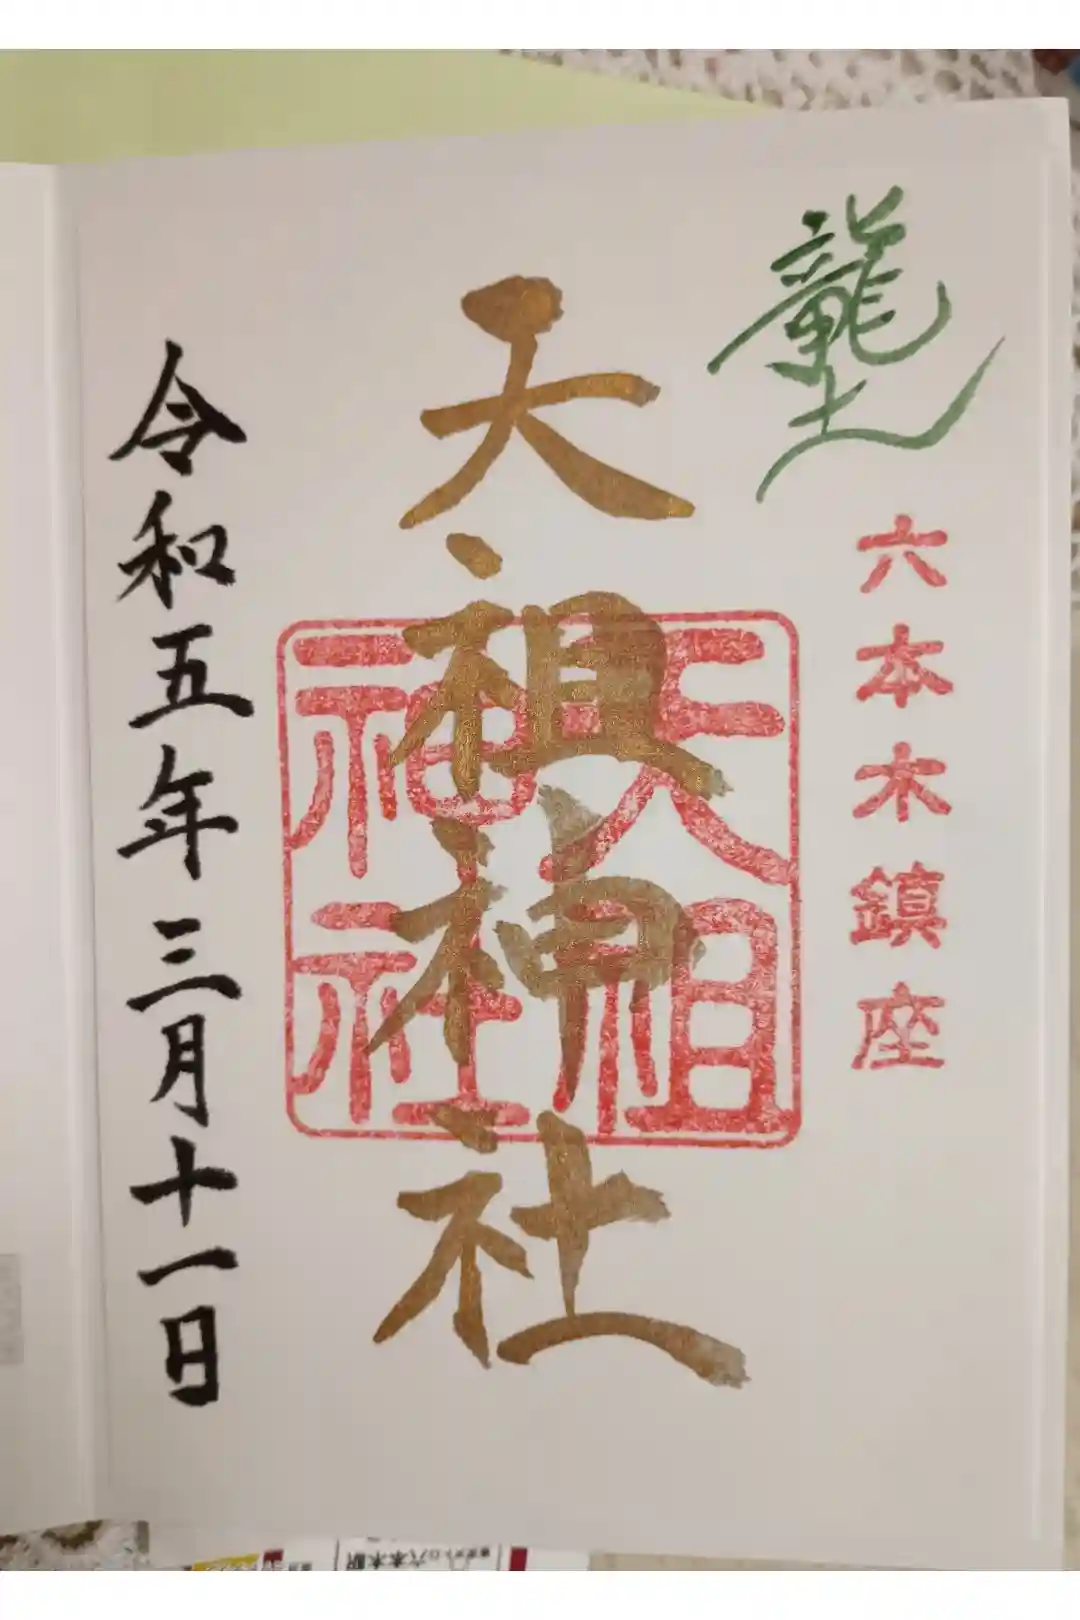 龍土
六本木鎮座
天祖神社
天祖
神社
令和五年三月十一日
六本木駅